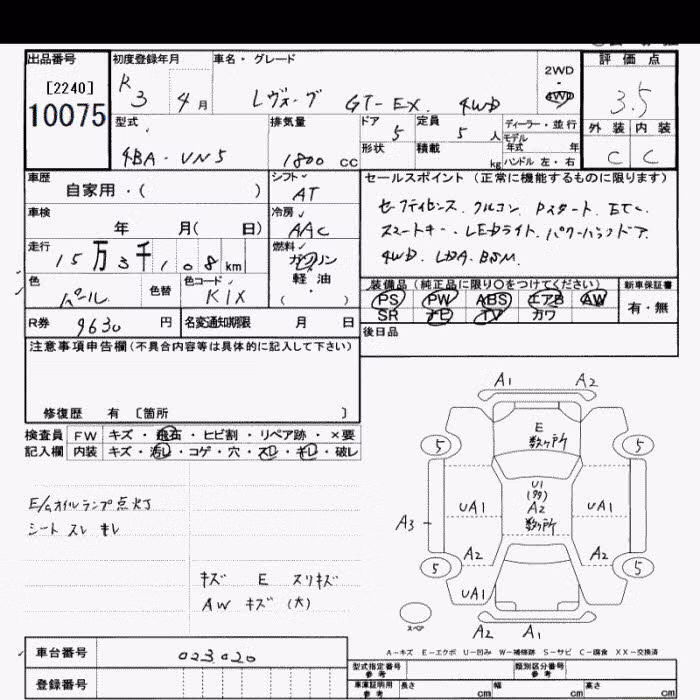 出品番号 初度登録年月 車名・グレード 2WD・4WD 評価点
[2240] R3 4月 レヴォーグ GT-EX 4WD 3.5
10075 型式 排気量 ドア 5 定員 5人 ディーラー・並行 外装 内装
4BA-VN5 1800cc 形状 積載 kg モデル年式 年 ハンドル 左・右 C C
車歴 シフト AT セールスポイント (正常に機能するものに限ります)
自家用・( ) セーフティセンス. クルコン. Pスタート. ETC.
車検 年 月( 日) 冷房 AAC スマートキー. LEDライト. パワーバックドア.
走行 15万3千108km 燃料 ガソリン 軽油 ( ・ ) 4WD. LDA. BSM.
色 パール 色替 色コード K1X 装備品 (純正品に限り○をつけてください) 新車保証書
PS PW ABS エアB AW 有・無
SR ナビ TV カワ
R券 9630円 名変通知期限 月 日 後日品
注意事項申告欄(不具合内容等は具体的に記入して下さい)
修復歴 有 〔箇所 〕
検査員 FW キズ・飛石・ヒビ割・リペア跡・×要
記入欄 内装 キズ・汚レ・コゲ・穴・スレ・キレ・破レ
E/Gオイルランプ点灯
シート スレ キレ
キズ E スリキズ
AW キズ (大)
A1 A2
E
数ヶ所
5 5
U1
UA1 A2 UA1
数ヶ所
A3
A2 A2
5 5
UA1
スペア
A2 A1
A-キズ E-エクボ U-凹み W-補修跡 S-サビ C-腐食 XX-交換済
車台番号 023020
登録番号
型式指定番号 参考 類別区分番号 参考
車庫証明用 参考 長さ cm 幅 cm 高さ cm